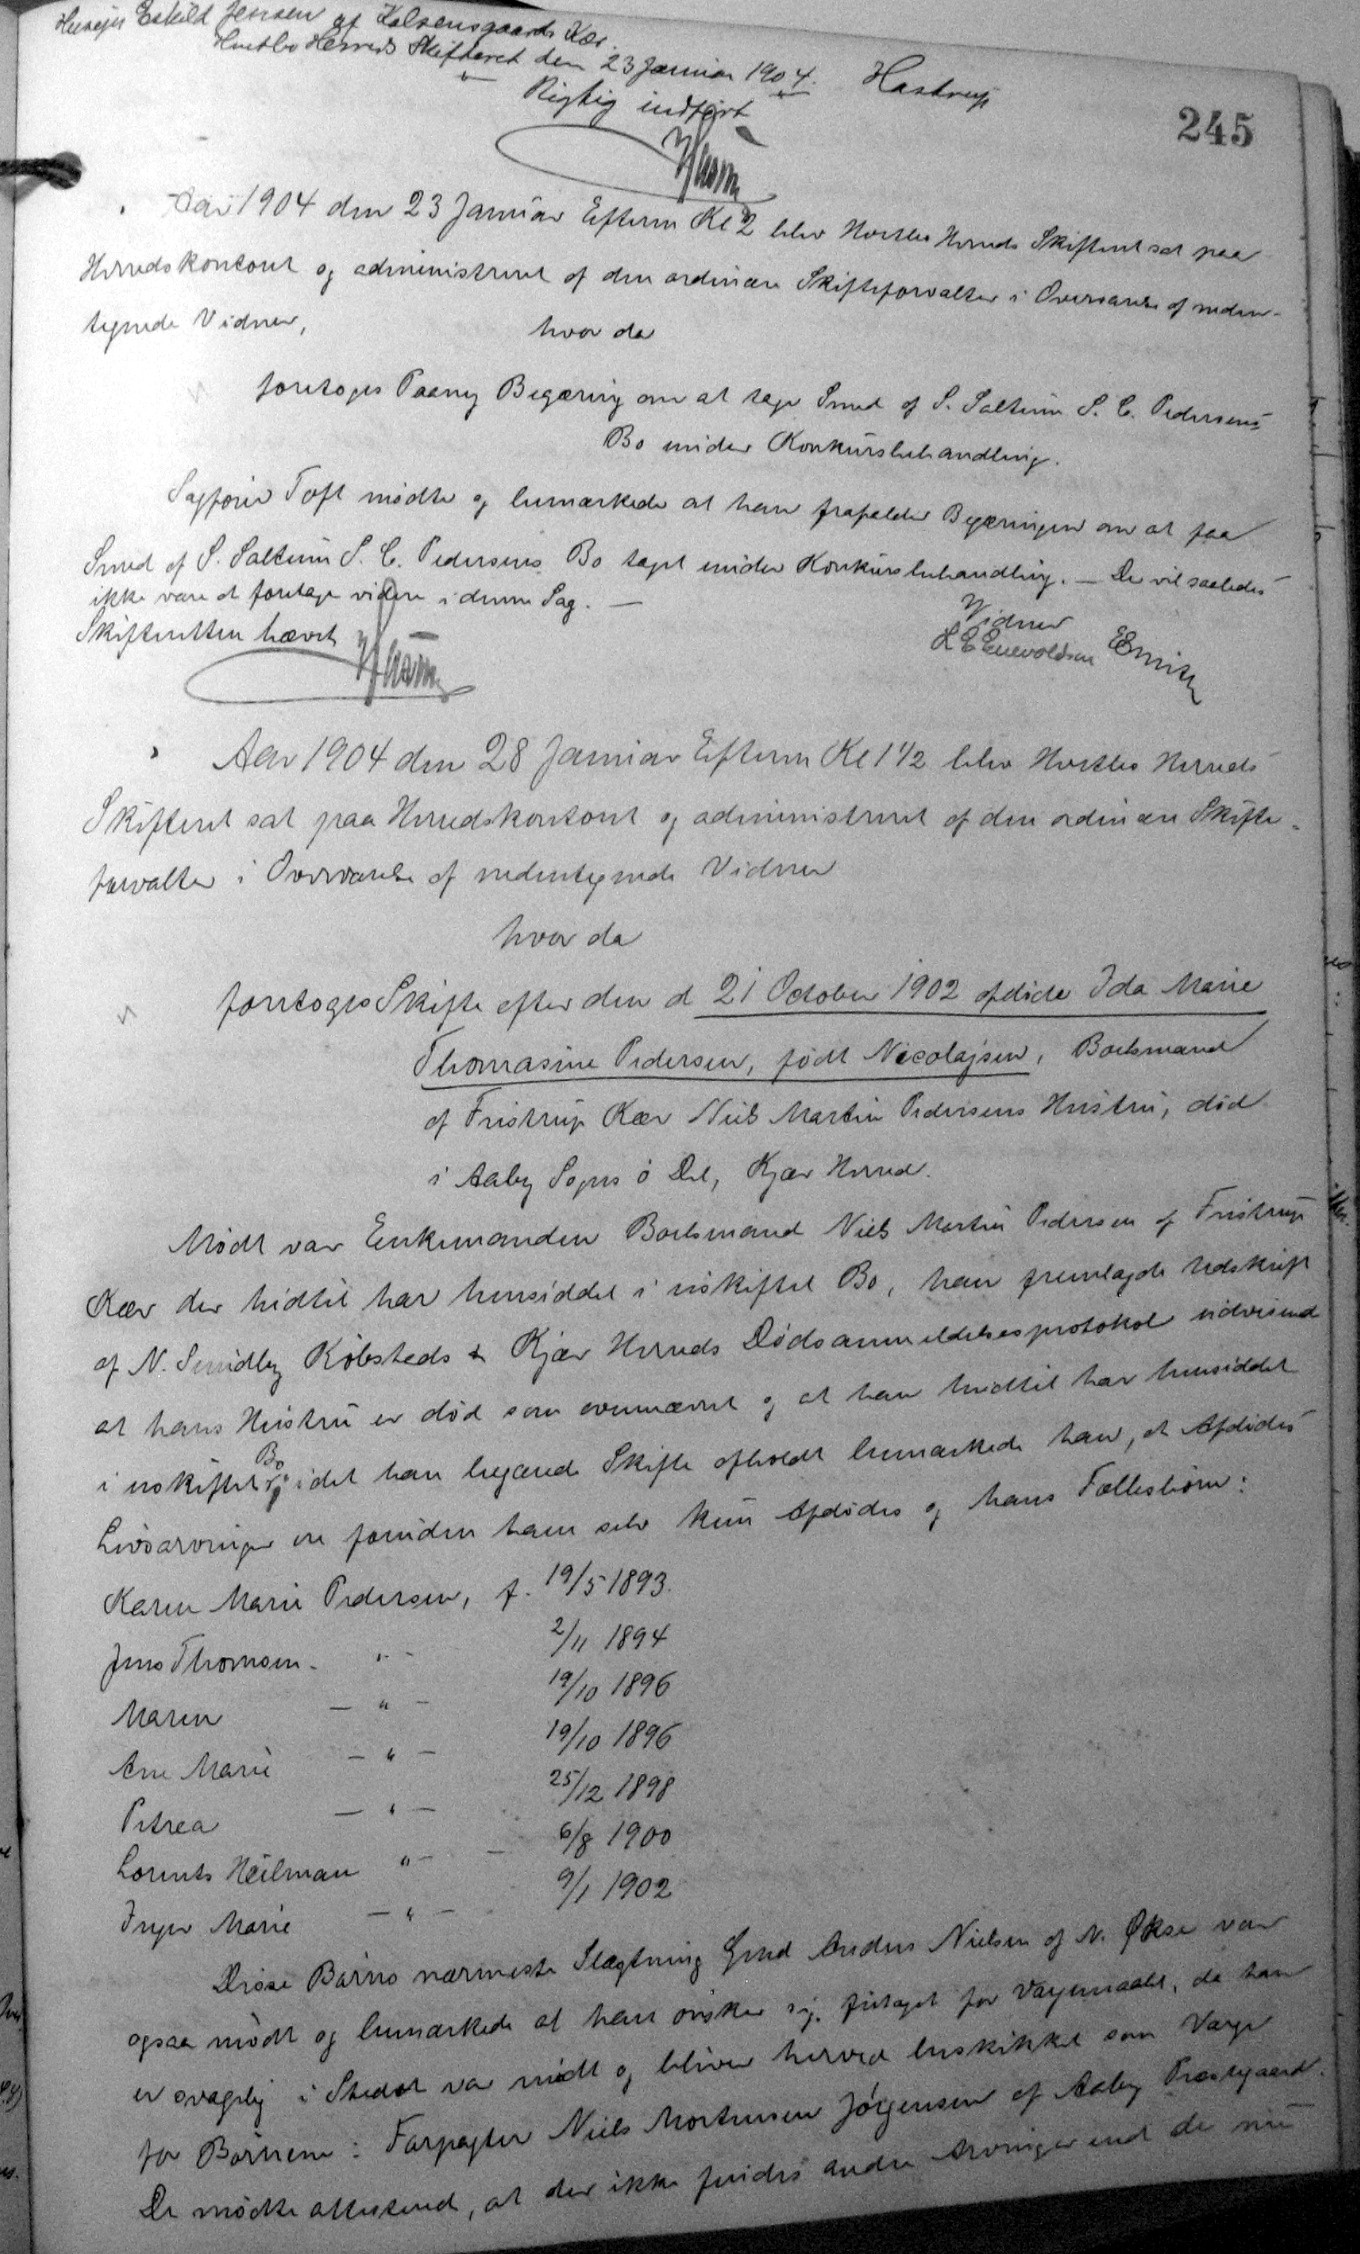 Huusejer Eskild Jensen af Kalsensgaards Kær.
Hvetbo Herreds Skifteret den 23 Januar 1904. Hastrup
Rigtig indført
245
Aar 1904 den 23 Januar Efterm Kl 2 blev Hvetbo Herreds Skifteret sat paa
Herredskontoret og administreret af den ordinære Skifteforvalter i Overværelse af neden-
tegnede Vidner,
hvor da
foretoges Paany Begæring om at tage Smed af S. Saltum S. C. Pedersens
Bo under Konkursbehandling.
Sagfører Toft mødte og bemærkede at han frafalder Begæringen om at faa
Smed af S. Saltum S. C. Pedersens Bo taget under Konkursbehandling. — Der vil saaledes
ikke være at foretage videre i denne Sag. —
Skifteretten hævet
Vidner
L C Enevoldsen ESmith
Aar 1904 den 28 Januar Efterm Kl 1 1/2 blev Hvetbo Herreds
Skifteret sat paa Herredskontoret og administreret af den ordinære Skifte-
forvalter i Overværelse af nedentegnede Vidner
hvor da
foretoges Skifte efter den d 21 October 1902 afdøde Ida Marie
Thomasine Pedersen, født Nicolajsen, Boelsmand
af Fristrup Kær Niels Martin Pedersens Hustru, død
i Aaby Sogns ö Del, Kjær Herred.
Mødt var Enkemanden Boelsmand Niels Martin Pedersen af Fristrup
Kær der hidtil har hensiddet i uskiftet Bo, han fremlagde Udskrift
af N. Sundby Købsteds & Kjær Herreds Dødsanmeldelsesprotokol udvisende
at hans Hustru er død som ovennævnt og at han hidtil har hensiddet
i uskiftet Bo, idet han begærede Skifte afholdt bemærkede han, at Afdødes
Livsarvinger ere foruden ham selv kun Afdødes og hans Fællesbørn:
Karen Marie Pedersen, f. 19/5 1893.
Jens Thomsen - " - 2/11 1894
Maren — " — 19/10 1896
Ane Marie — " — 19/10 1896
Petrea — " — 25/12 1898
Lorents Heilman " — 6/8 1900
Inger Marie — " — 9/1 1902
Disse Børns nærmeste Slægtning Grmd Anders Nielsen af N. Økse var
ogsaa mødt og bemærkede at han ønsker sig fritaget for Værgemaalet, da han
er svagelig i Stedet var mødt og bliver herved beskikket som Værge
for Børnene: Forpagter Niels Mortensen Jörgensen af Aaby Præstegaard.
De mødte attesterede, at der ikke findes andre Arvinger end de nu